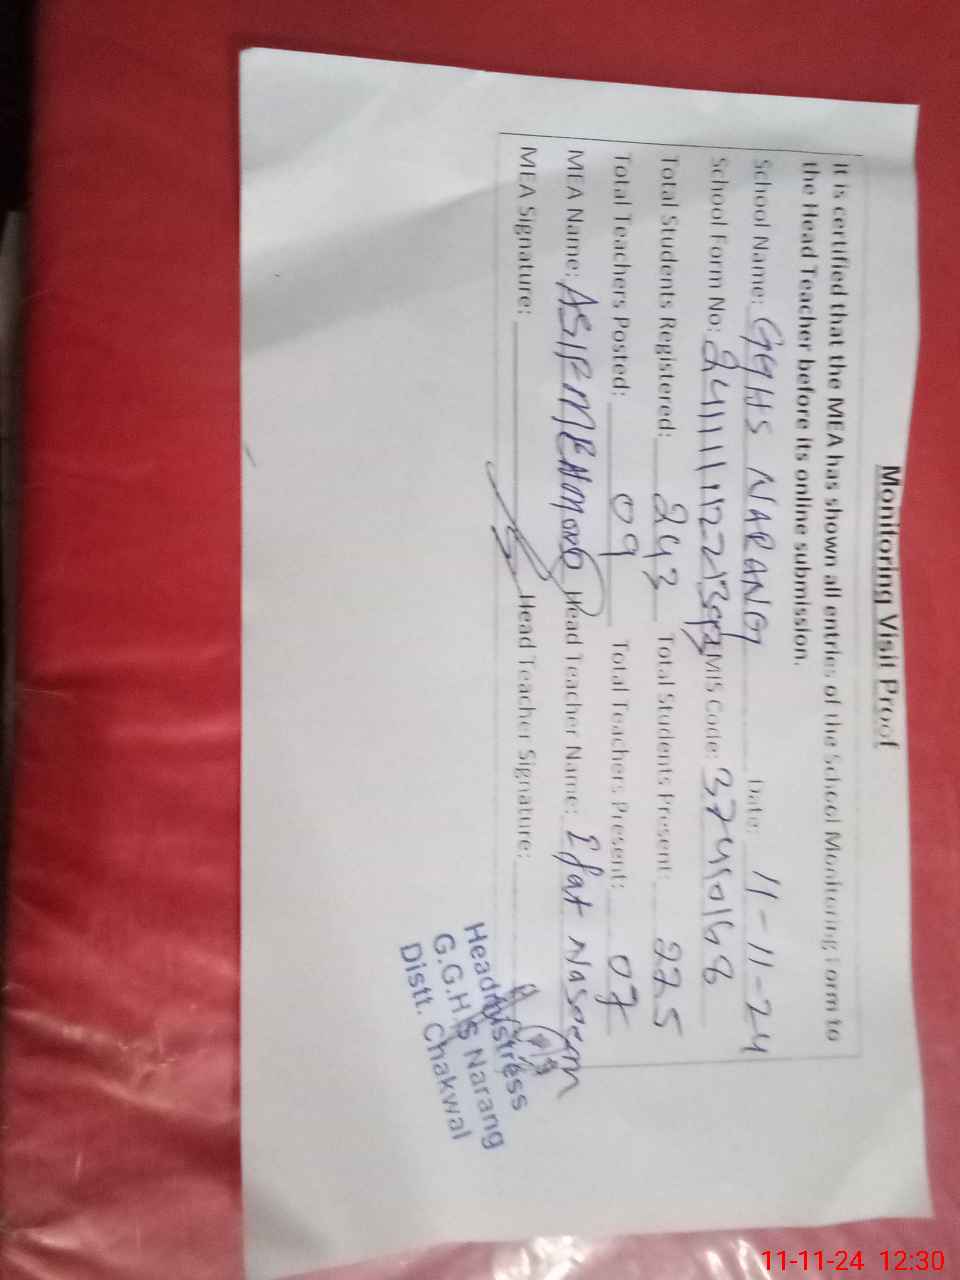 Monitoring Visit Proof
It is certified that the MEA has shown all entries of the School Monitoring Form to
the Head Teacher before its online submission.
School Name: GGHS NARANG Date: 11-11-24
School Form No: MIS Code: 37410168
Total Students Registered: 243 Total Students Present: 225
Total Teachers Posted: 09 Total Teachers Present: 07
MEA Name: ASIF MEHMOOD Head Teacher Name: Ifat Naseem
MEA Signature: Head Teacher Signature:
Headmistress
G.G.H S Narang
Distt. Chakwal
11-11-24 12:30